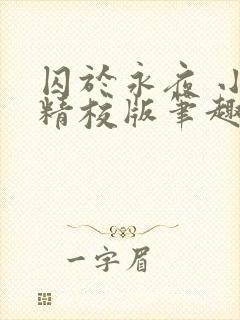 囚於永夜 小
精校版筆趣
一字眉